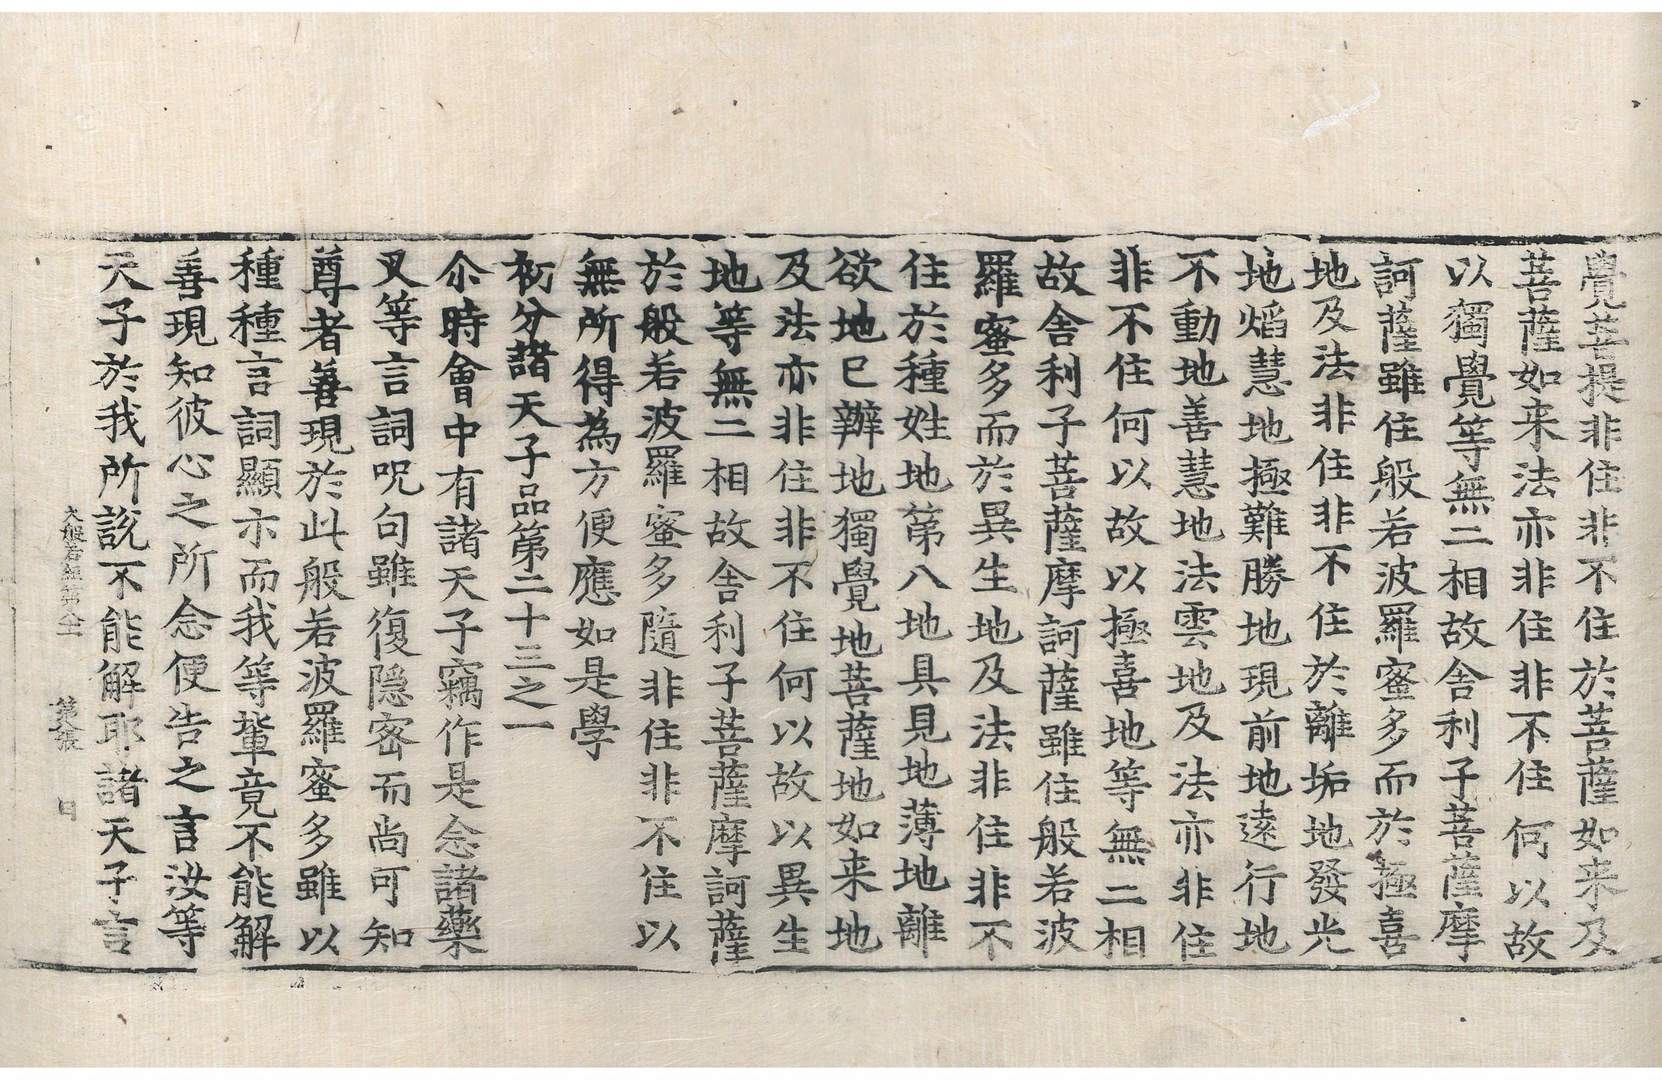 覺菩提非住非不住於菩薩如来及
菩薩如来法亦非住非不住何以故
以獨覺等無二相故舍利子菩薩摩
訶薩雖住般若波羅蜜多而於極喜
地及法非住非不住於離垢地發光
地焰慧地極難勝地現前地遠行地
不動地善慧地法雲地及法亦非住
非不住何以故以極喜地等無二相
故舍利子菩薩摩訶薩雖住般若波
羅蜜多而於異生地及法非住非不
住於種姓地第八地具見地薄地離
欲地已辦地獨覺地菩薩地如来地
及法亦非住非不住何以故以異生
地等無二相故舍利子菩薩摩訶薩
於般若波羅蜜多隨非住非不住以
無所得為方便應如是學
初分諸天子品第二十三之一
尒時會中有諸天子竊作是念諸藥
叉等言詞呪句雖復隱密而尚可知
尊者善現於此般若波羅蜜多雖以
種種言詞顯示而我等輩竟不能解
善現知彼心之所念便告之言汝等
天子於我所說不能解耶諸天子言
大般若經第 張